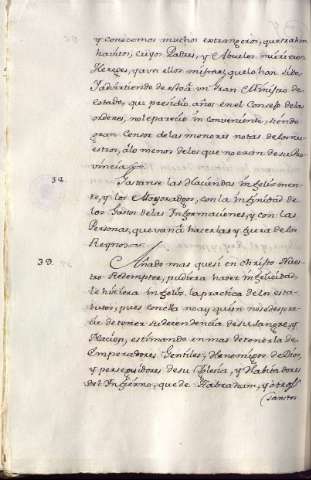 y conocemos muchos extrangeros, que trahen
havitos, cuyos Padres, y Abuelos murieron
Hereges, y aun ellos mismos, que lo han sido
Y advirtiendo de esto à un Gran Ministro de
estado, que presidio años en el Consejo de las
ordenes, no le parecio inconveniente, siendo
gran Censor de las menores notas de los nu
estros, à lo menos de los que no eran de su Pro
vincia
32. Gastanse las Haciendas infelizmen
te, y los Mayorazgos, con la infinidad de
los Gastos de las Informaciones, y con las
Personas, que van à hacerlas, y fuera de los
Reynos
33. Añado mas que si en Christo Nues
tro Redemptor, pudiera haver infelicidad,
le hiciera infeliz, la practica de los esta
tutos, pues con ella no ay quien no se despre
cie de tener su decendencia de su sangre, y
Nacion, estimando en mas de tenerla de
Emperadores Gentiles, y Enemigos de Dios,
y perseguidores de su Yglesia, y Habitadores
del Infierno, que de Habraham, y otros
Santos